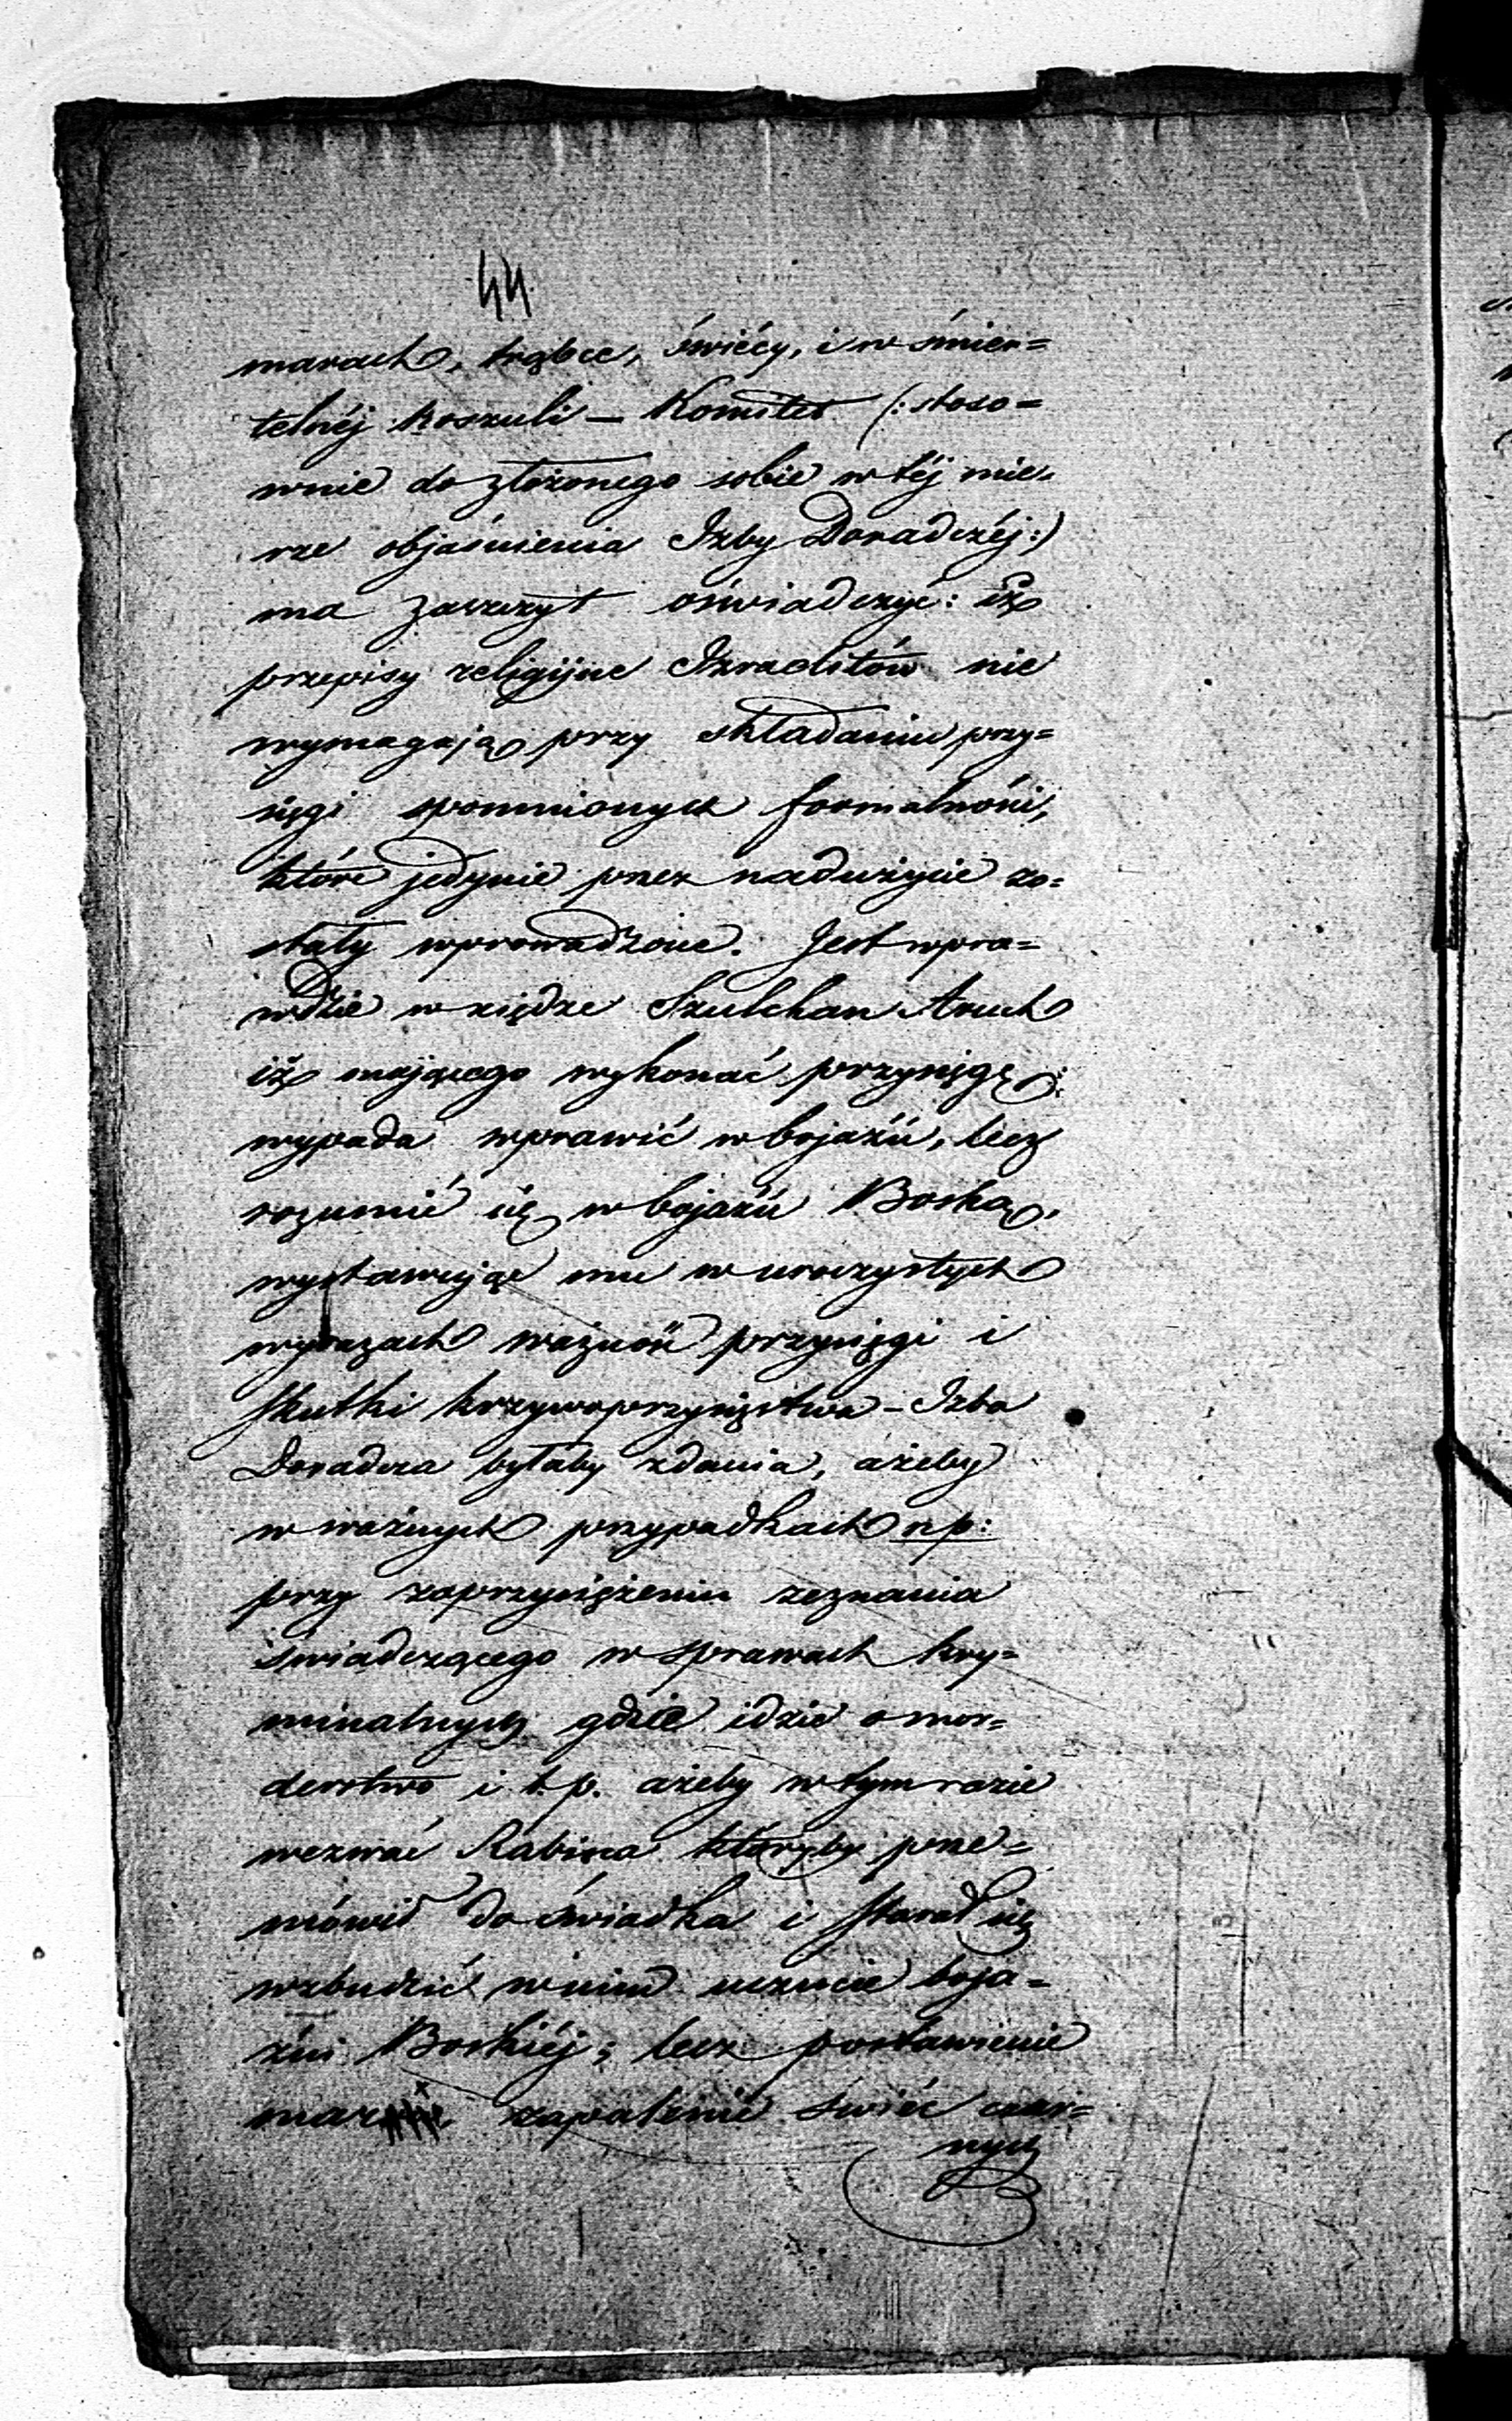 44
marach, trąbce, świécy, i w śmier=
telnéj koszuli – Komitet (: stoso=
wnie do złożonego sobie w téj mie=
rze objaśnienia Izby Doradczéj :)
ma zaszczyt oświadczyć: iż
przepisy religijne Izraelitów nie
wymagają przy składaniu przy=
sięgi spomnionych formalności,
które jedynie przez nadużycie zo=
stały wprowadzone. Jest wpra=
wdzie w xiędze Szulchan Aruch
iż mającego wykonać przysięgę
wypada wprawić w bojaźń, lecz
rozumié się w bojaźń Boską,
wystawując mu w uroczystych
wyrazach ważność przysięgi i
skutki krzywoprzysięstwa – Izba
Doradcza byłaby zdania, ażeby
w ważnych przypadkach np:
przy zaprzysiężeniu zeznania
świadczącego w sprawach kry=
minalnych gdzie idzie o mor=
derstwo i t. p. ażeby w tym razie
wezwać Rabina któryby prze=
mówił do świadka i starał się
wzbudzić w nim uczucie boja=
źni Boskiéj; lecz postawienie
mar zapalenie świéc czar=
nych